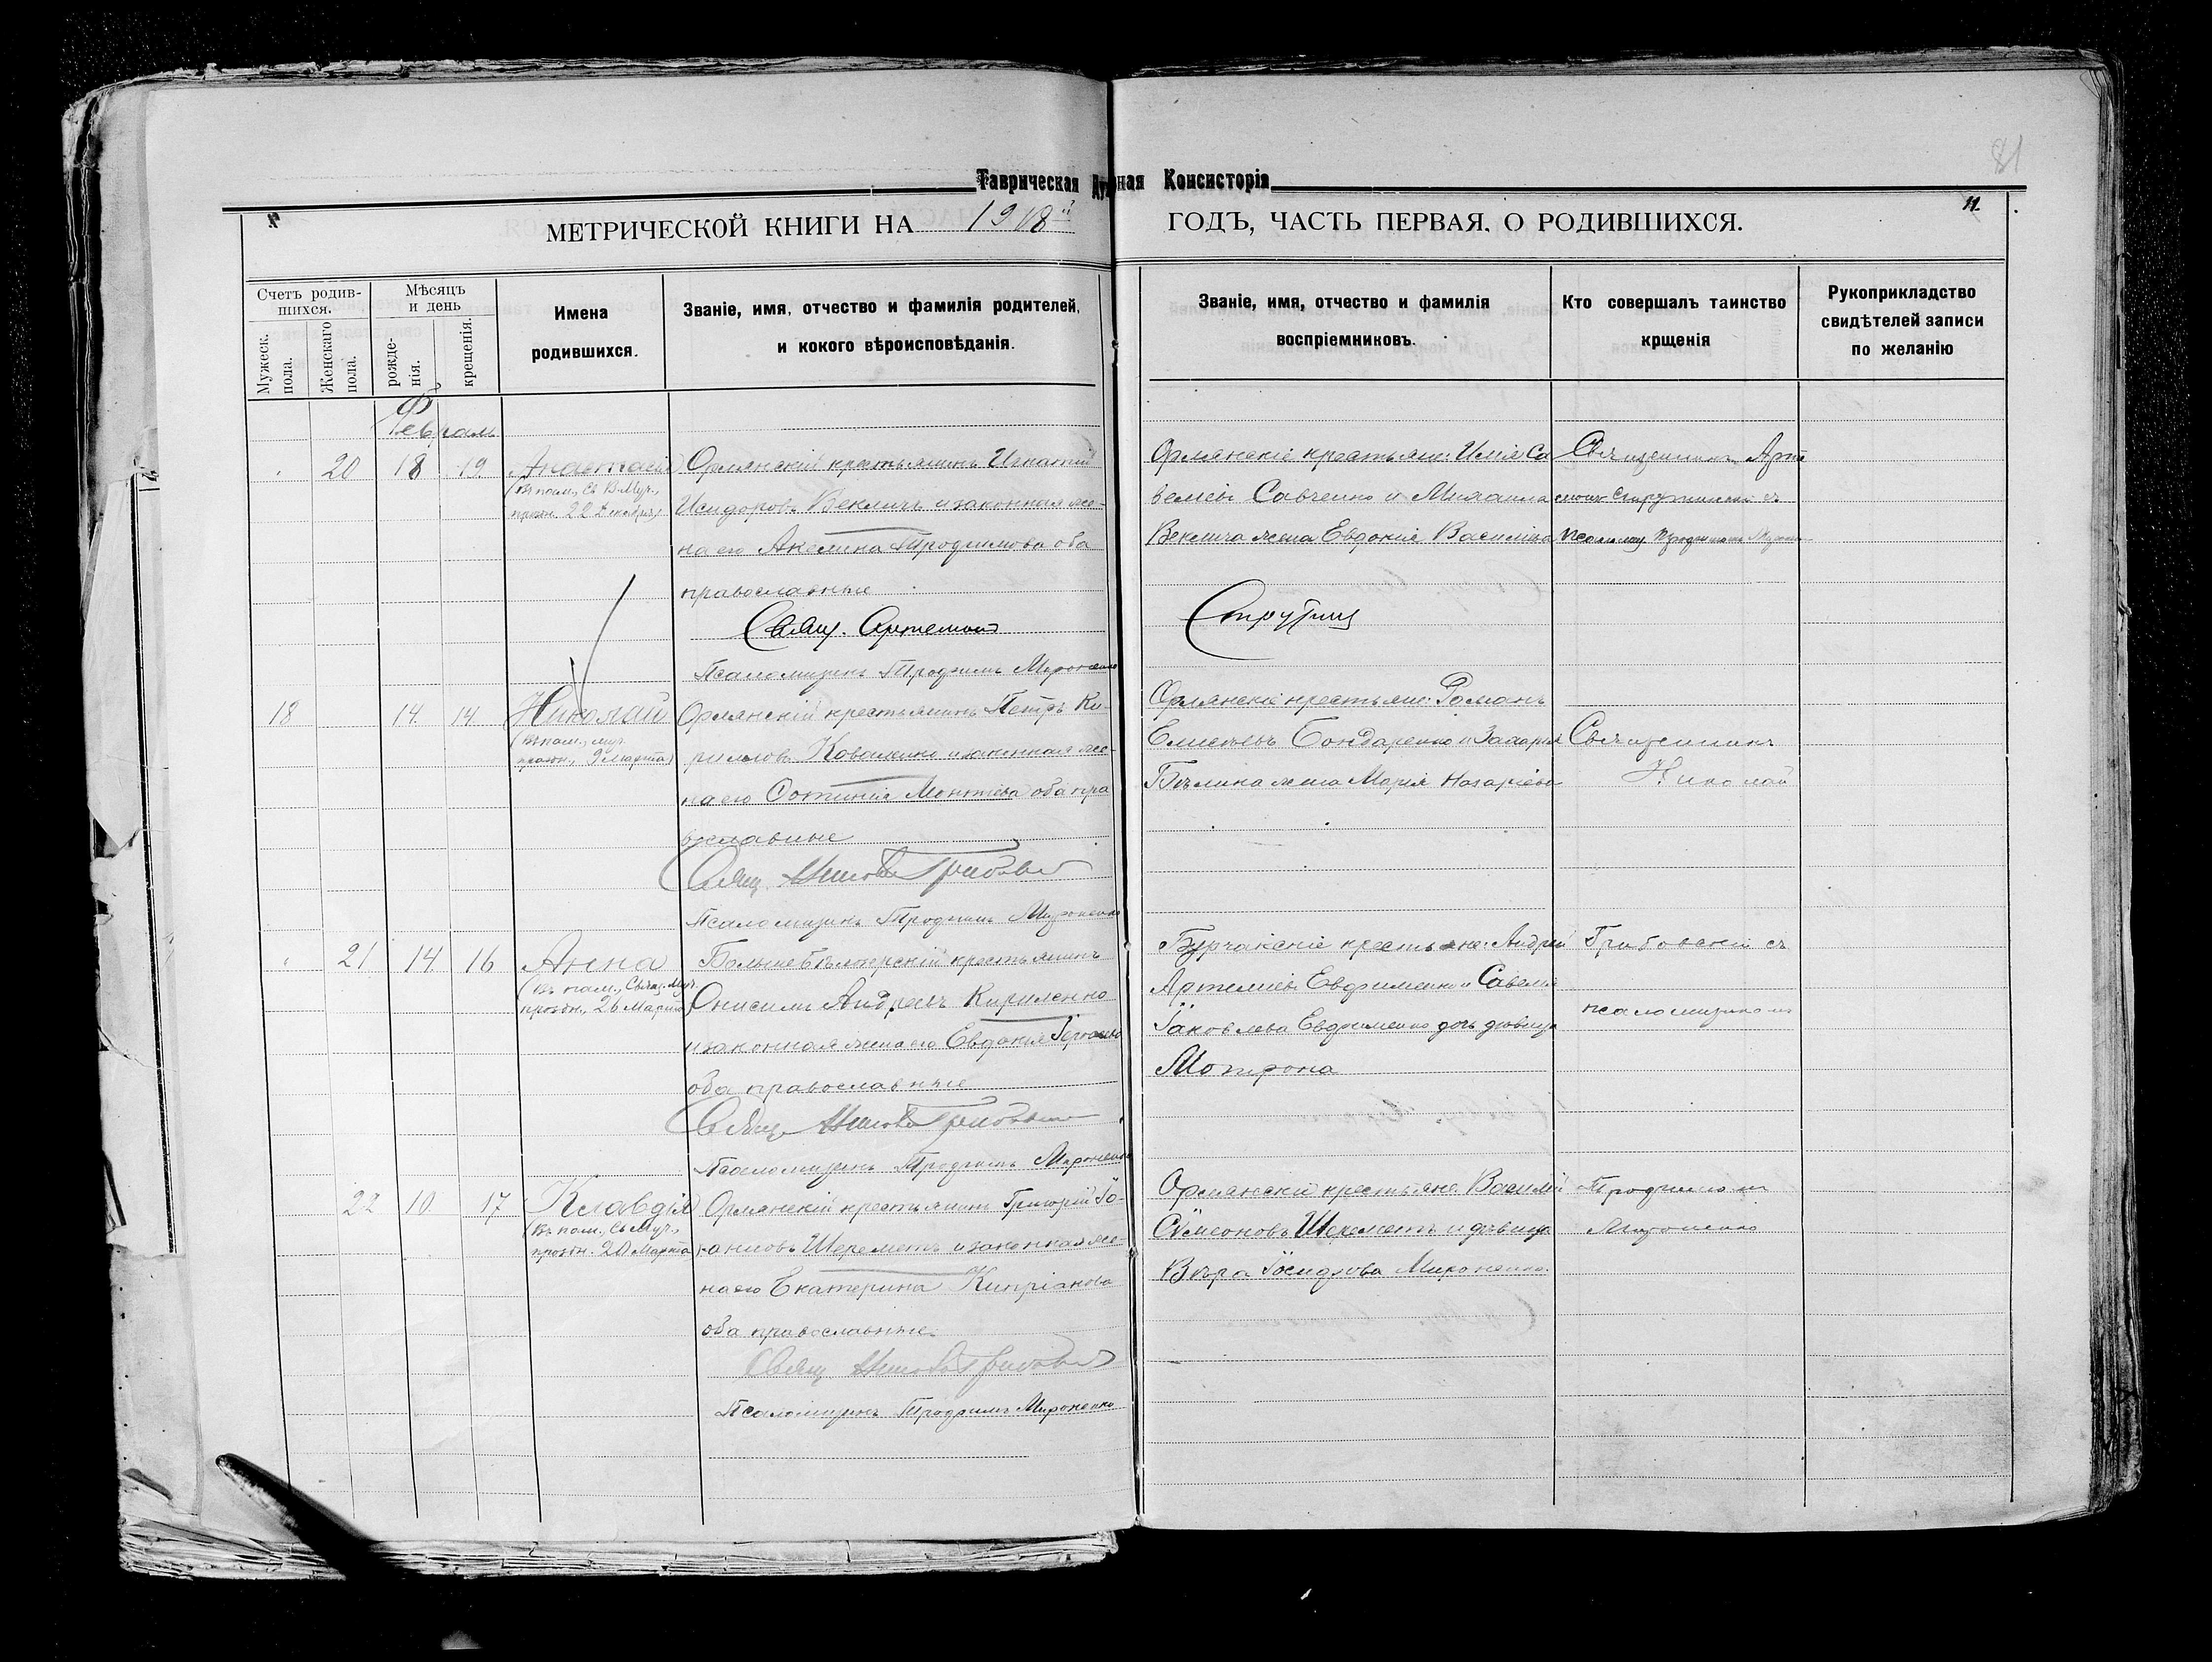 81
Таврическая Духовная Консисторія
11.
МЕТРИЧЕСКОЙ КНИГИ НА 1918й ГОДЪ, ЧАСТЬ ПЕРВАЯ, О РОДИВШИХСЯ.
Счетъ родив-
шихся.
Мужеск. пола.
Женскаго пола.
Мѣсяцъ
и день
рожде-
нія.
крещенія.
Имена
родившихся.
Званіе, имя, отчество и фамилія родителей,
и кокого вѣроисповѣданія.
Званіе, имя, отчество и фамилія
воспріемниковъ.
Кто совершалъ таинство
крщенія
Рукоприкладство
свидѣтелей записи
по желанію
Февраль
20 18 19. Анастасія
(въ пам., Св. В. Муч.,
празн. 22 Декабря)
Орлянскій крестьянинъ Игнатій
Исидоровъ Векличъ и законная же-
на его Акелина Трофимова оба
православные
Свящ. Артемонъ
Псаломщикъ Трофимъ Мироненко
Орлянскіе крестьяне: Илія Са
велевъ Савченко и Михаила
Веклича жена Евдокія Василіева
Струтин
Священникъ Арте
монъ Струтинскій съ
18 14. 14. Николай
(въ пам., муч.
празн., 9 Марта)
Орлянскій крестьянинъ Петръ Ки-
рилловъ Коваленко и законная же-
на его Фотинія оба пра
вославные
Свящ. Николай Грибовскі
Псаломщикъ Трофимъ Мироненко
Орлянскіе крестьяне: Романъ
Елисѣевъ Бондаренко и Захарія
Бѣлика жена Марія Назаріева
Священникъ
Николай
21 14 16 Анна
(въ пам., Свящ. Муч.
празн., 26 Марта)
Больше Бѣлозерскій крестьянинъ
Онисимъ Андреевъ Кириленко
и законная жена его Евдокія
оба православные
Свящ. Николай Грибовскі
Псаломщикъ Трофимъ Мироненко
Бурчакскіе крестьяне: Андрей
Артеміевъ Евфименко и Савелія
Іаковлева Евфименко дочь дѣвица
Мотрона
Грибовскій съ
псаломщикомъ
22 10 17 Клавдія
(въ пам. Св. Муч.,
празн. 20 Марта)
Орлянскій крестьянинъ Григорій Іо-
анновъ Шереметъ и законная же-
на его Екатерина Кипріанова
оба православные.
Свящ. Николай Грибовскі
Псаломщикъ Трофимъ Мироненко
Орлянскіе крестьяне: Василій
Сѵмеоновъ Шереметъ и дѣвица
Вѣра Іосифова Мироненко.
Трофимомъ
Мироненко